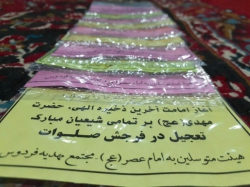 آغاز امامت آخرین ذخیره الهی، حضرت
مهدی (عج) بر تمامی شیعیان مبارک
تعجیل در فرجش صلوات
هیئت متوسلین به امام عصر (عج)، مجتمع مهدیه فردوس